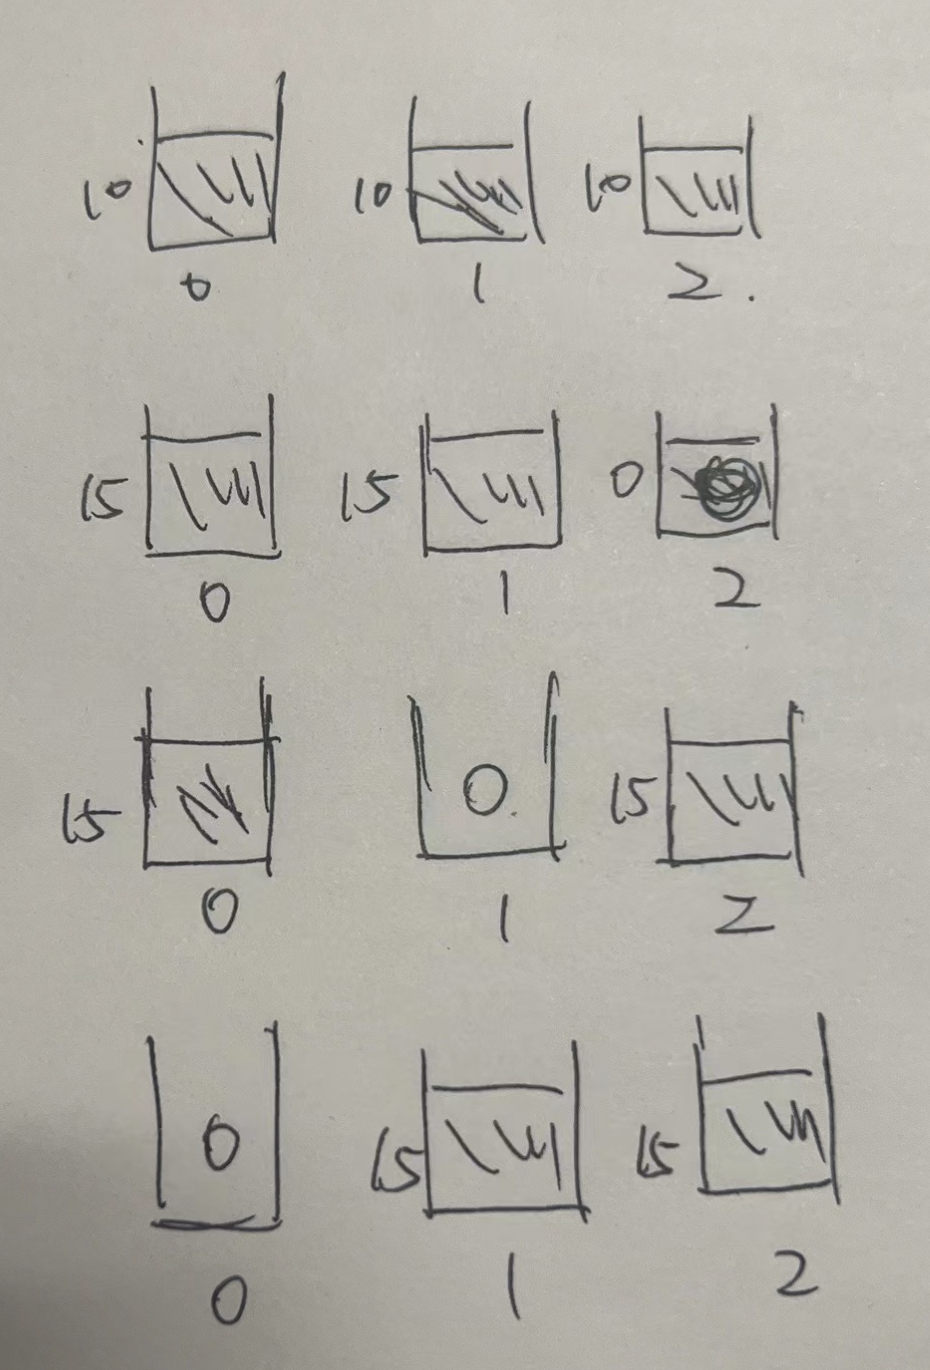 10 10 10
0 1 2.
15 15 0
0 1 2
15 0 15
0 1 2
0 15 15
0 1 2